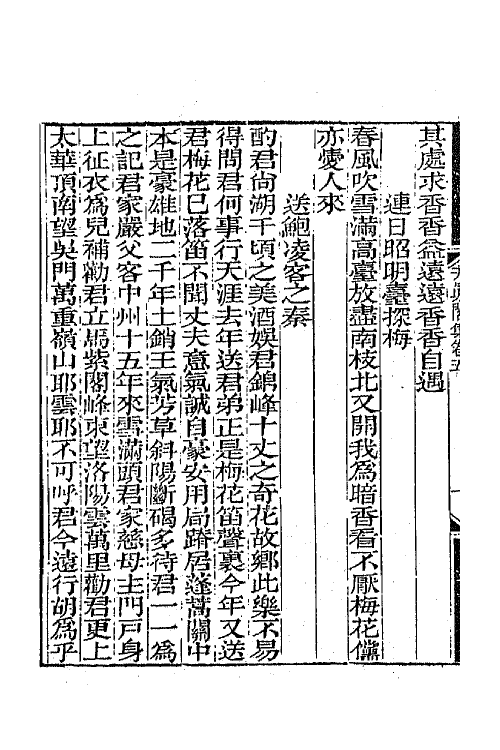 其處求香香益遠遠香香自遇
連日昭明臺探梅
春風吹雪滿高臺放盡南枝北又開我爲暗香看不厭梅花儻
亦愛人來
送鮑凌客之秦
酌君尚湖千頃之美酒娛君錦峰十丈之奇花故鄉此樂不易
得問君何事行天涯去年送君弟正是梅花笛聲裏今年又送
君梅花已落笛不聞丈夫意氣誠自豪安用局蹐居蓬蒿關中
本是豪雄地二千年土銷王氣芳草斜陽斷碣多待君一一爲
之記君家嚴父客中州十五年來雪滿頭君家慈母主門戸身
上征衣爲兒補勸君立馬紫閣峰東望洛陽雲萬里勸君更上
太華頂南望吳門萬重嶺山耶雲耶不可呼君今遠行胡爲乎